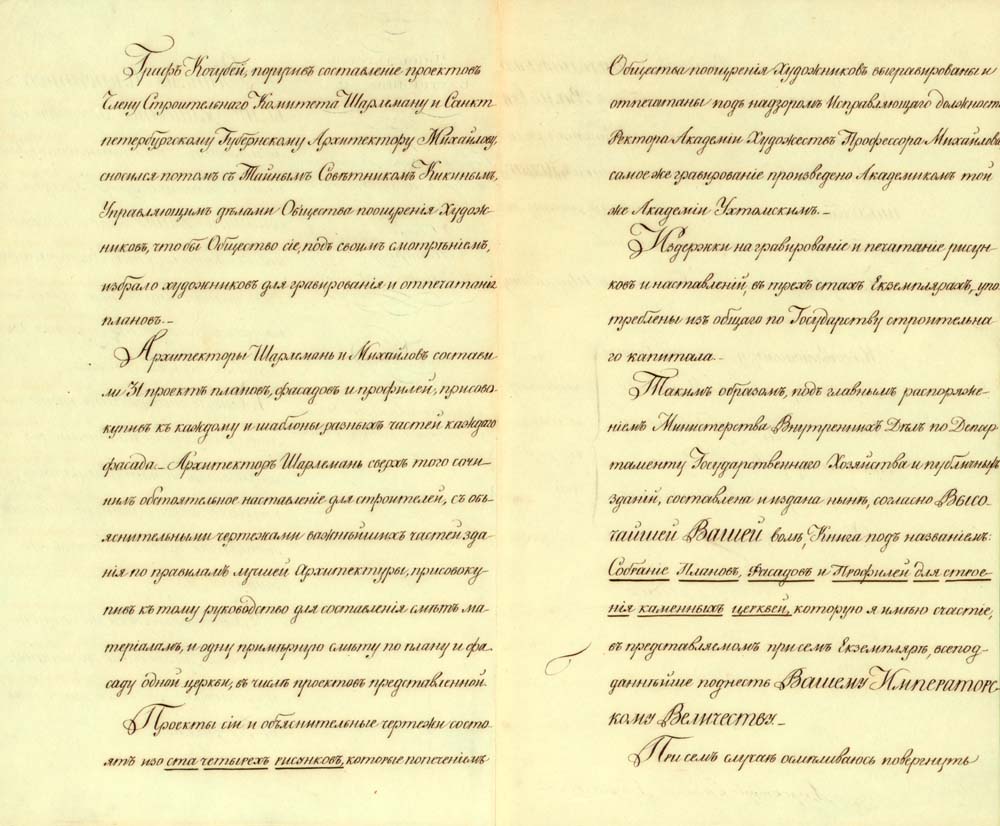 Графъ Кочубей, поручивъ составленіе проектовъ
Члену Строительнаго Комитета Шарлеману и Санкт
петербургскому Губернскому Архитектору Михайлову,
сносился потомъ съ Тайнымъ Совѣтникомъ Кикинымъ,
Управляющимъ дѣлами Общества поощренія Худож-
никовъ, чтобы Общество сіе, подъ своимъ смотрѣніемъ,
избрало художниковъ для гравированія и отпечатанія
плановъ.–
Архитекторы Шарлеманъ и Михайловъ состави-
ли 31 проектъ плановъ, фасадовъ и профилей, присово
купивъ къ каждому и шаблоны разныхъ частей каждаго
фасада.– Архитекторъ Шарлеманъ сверхъ того сочи-
нилъ обстоятельное наставленіе для строителей, съ объ-
яснительными чертежами важнѣйшихъ частей зда-
нія по правиламъ лучшей Архитектуры, присовоку-
пивъ къ тому руководство для составленія смѣтъ ма-
теріаламъ, и одну примѣрную смѣту по плану и фа-
саду одной церкви, въ числѣ проектовъ представленной.
Проекты сіи и объяснительные чертежи состо-
ятъ изо ста четырехъ рисунковъ, которые попеченіемъ
Общества поощренія Художниковъ выгравированы и
отпечатаны подъ надзоромъ Исправляющаго должность
Ректора Академіи Художествъ Профессора Михайлова,
самое же гравированіе произведено Академикомъ той
же Академіи Ухтомскимъ.–
Издержки на гравированіе и печатаніе рисун-
ковъ и наставленій, въ трехъ стахъ Екземплярахъ, упо
треблены изъ общаго по Государству строительна-
го капитала.–
Такимъ образомъ, подъ главнымъ распоряже-
ніемъ Министерства Внутреннихъ Дѣлъ по Депар
таменту Государственнаго Хозяйства и публичныхъ
зданій, составлена и издана нынѣ, согласно Высо-
чайшей Вашей волѣ, Книга подъ названіемъ:
Собраніе Плановъ, Фасадовъ и Профилей для строе-
нія каменныхъ церквей, которую я имѣю счастіе,
въ представляемомъ при семъ Екземплярѣ, всепод-
даннѣйше поднесть Вашему Императорс-
кому Величеству.–
При семъ случаѣ осмѣливаюсь повергнуть